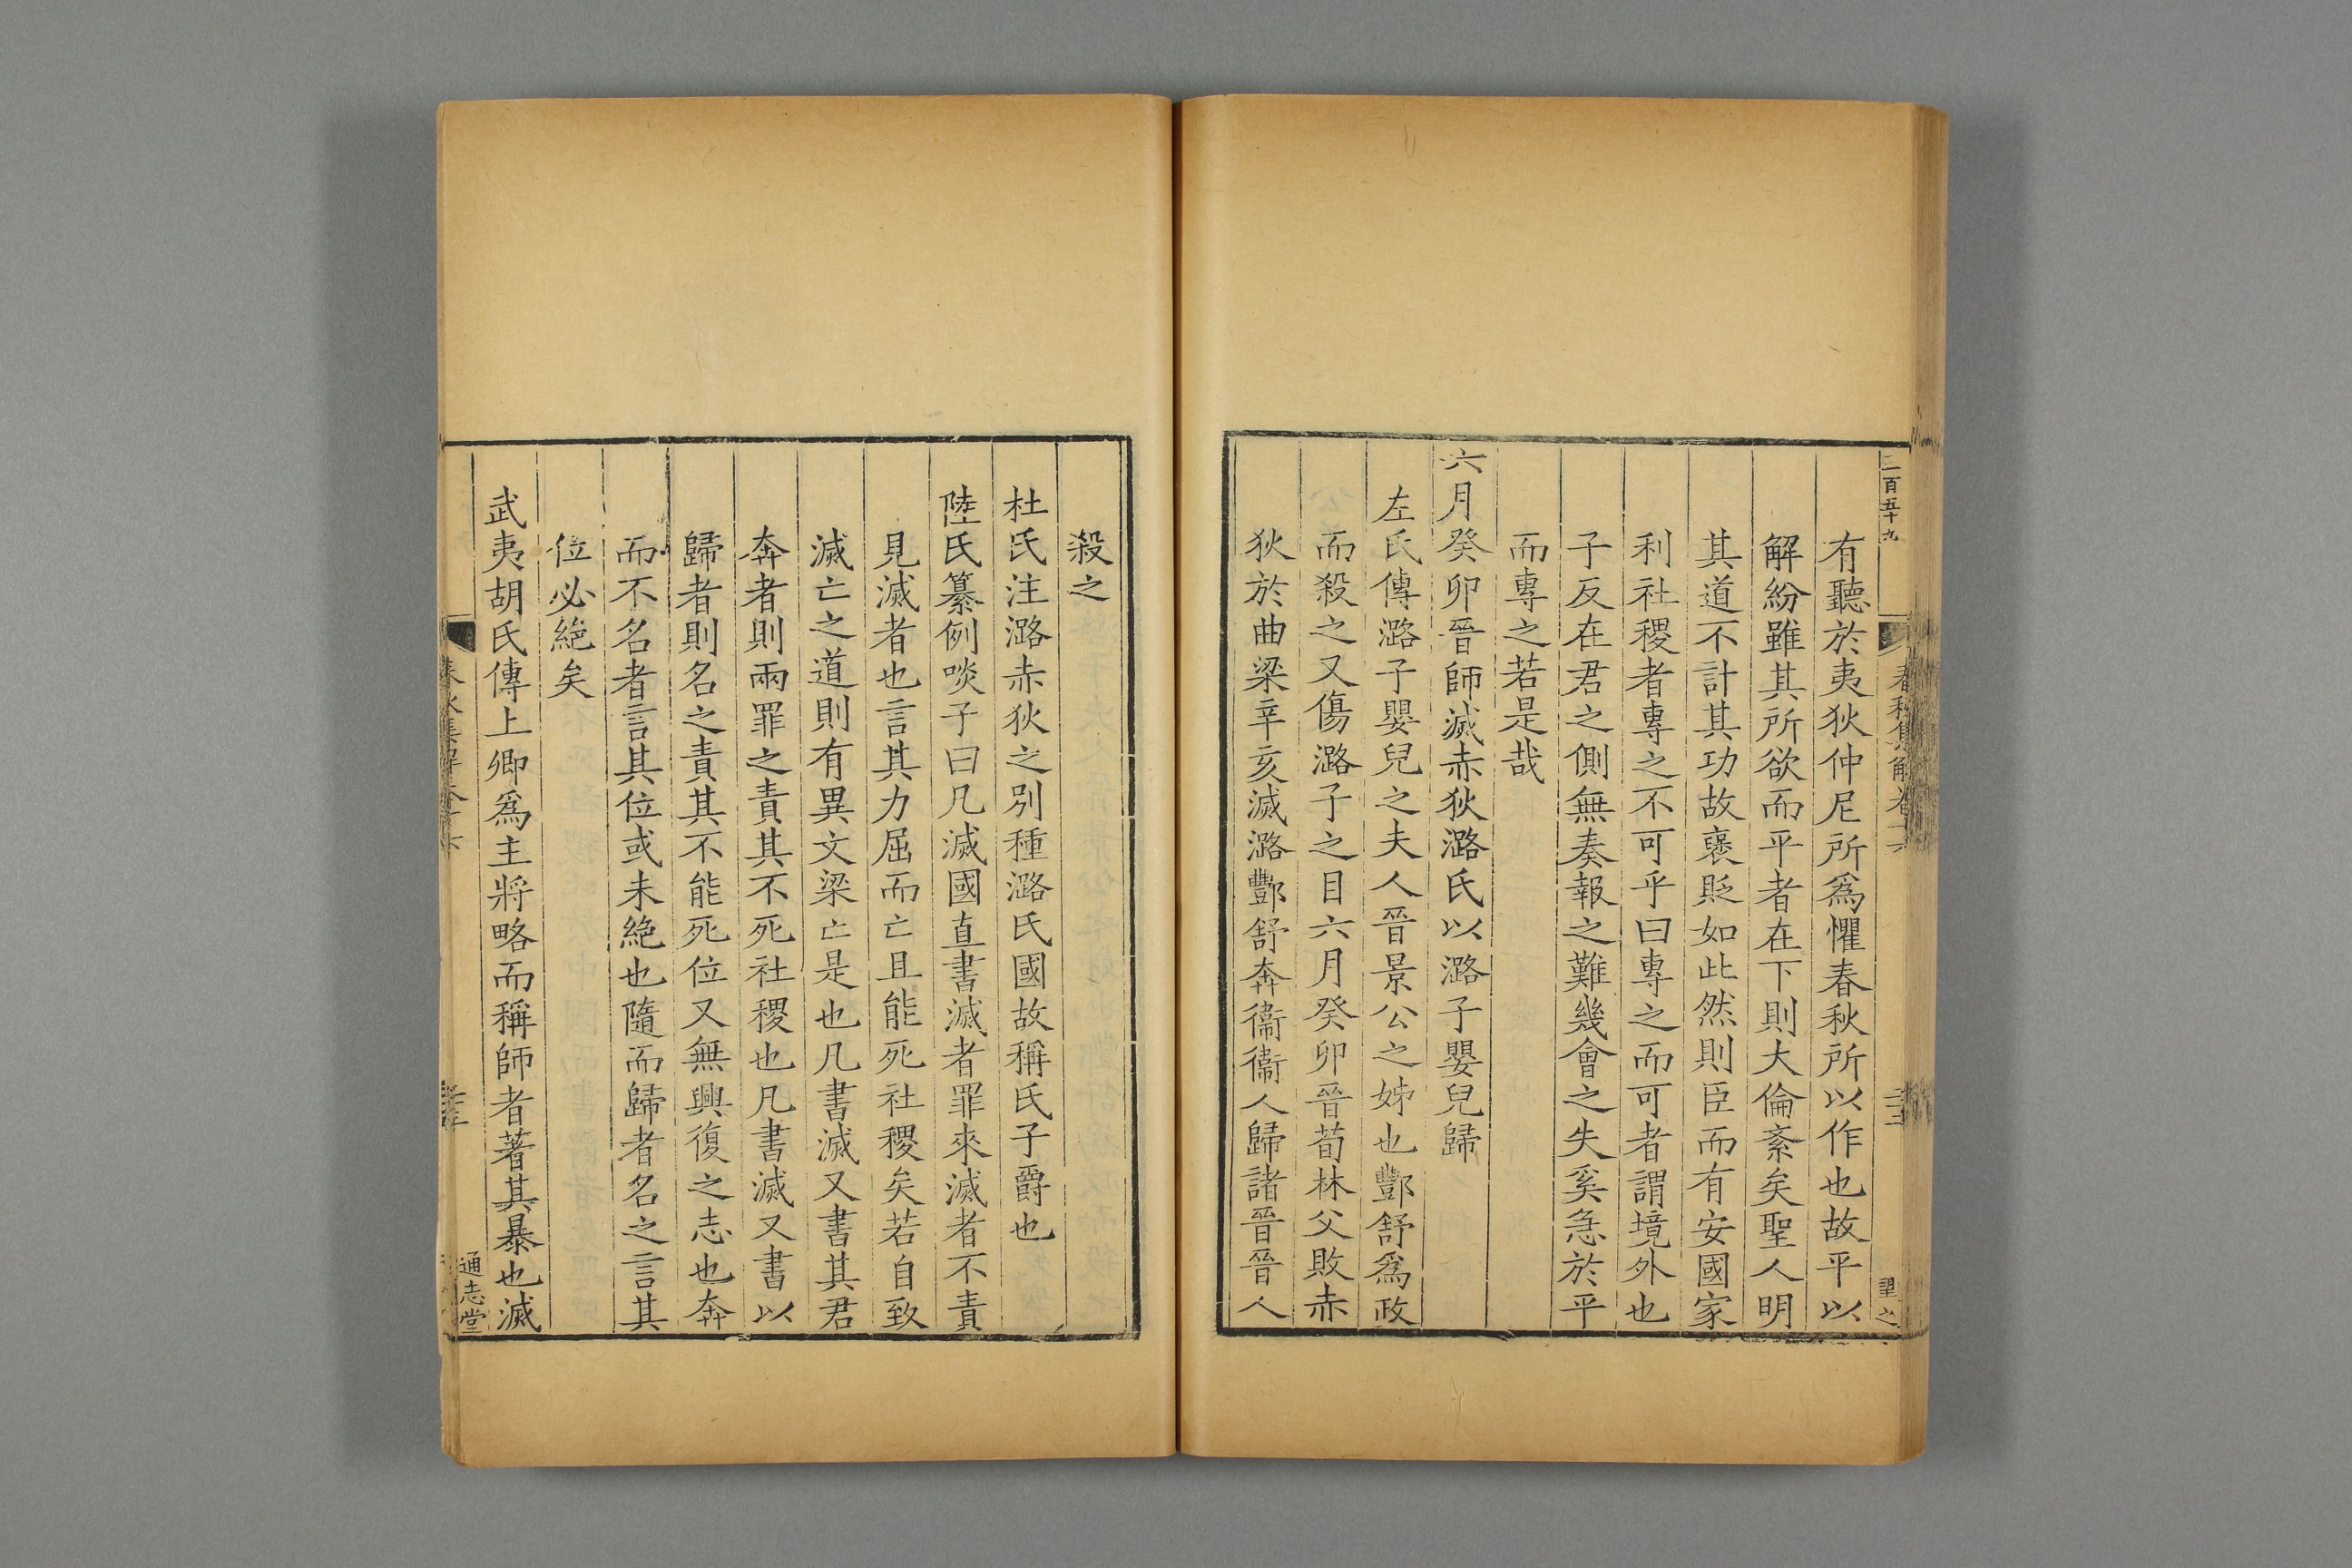 有聽於夷狄仲尼所爲懼春秋所以作也故平以
解紛雖其所欲而平者在下則大倫紊矣聖人明
其道不計其功故襃貶如此然則臣而有安國家
利社稷者專之不可乎曰專之而可者謂境外也
子反在君之側無奏報之難幾會之失奚急於平
而專之若是哉
六月癸卯晉師滅赤狄潞氏以潞子嬰兒歸
左氏傳潞子嬰兒之夫人晉景公之姊也酆舒爲政
而殺之又傷潞子之目六月癸卯晉荀林父敗赤
狄於曲梁辛亥滅潞酆舒奔衞衞人歸諸晉晉人
殺之
杜氏注潞赤狄之别種潞氏國故稱氏子爵也
陸氏纂例啖子曰凡滅國直書滅者罪來滅者不責
見滅者也言其力屈而亡且能死社稷矣若自致
滅亡之道則有異文梁亡是也凡書滅又書其君
奔者則兩罪之責其不死社稷也凡書滅又書以
歸者則名之責其不能死位又無興復之志也奔
而不名者言其位或未絶也隨而歸者名之言其
位必絶矣
武夷胡氏傳上卿爲主將略而稱師者著其暴也滅
通志堂